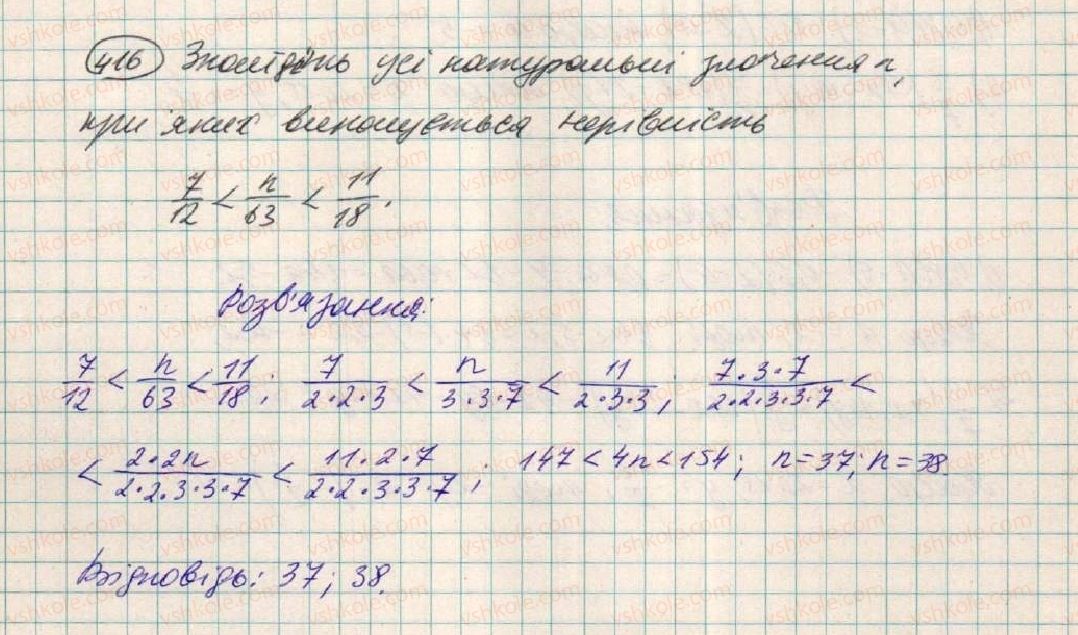 416 Знайдіть усі натуральні значення n,
при яких виконується нерівність
7/12 < n/63 < 11/18.
Розв'язання:
7/12 < n/63 < 11/18; 7/(2·2·3) < n/(3·3·7) < 11/(2·3·3); (7·3·7)/(2·2·3·3·7) <
< (2·2n)/(2·2·3·3·7) < (11·2·7)/(2·2·3·3·7); 147 < 4n < 154; n=37; n=38.
Відповідь: 37; 38.